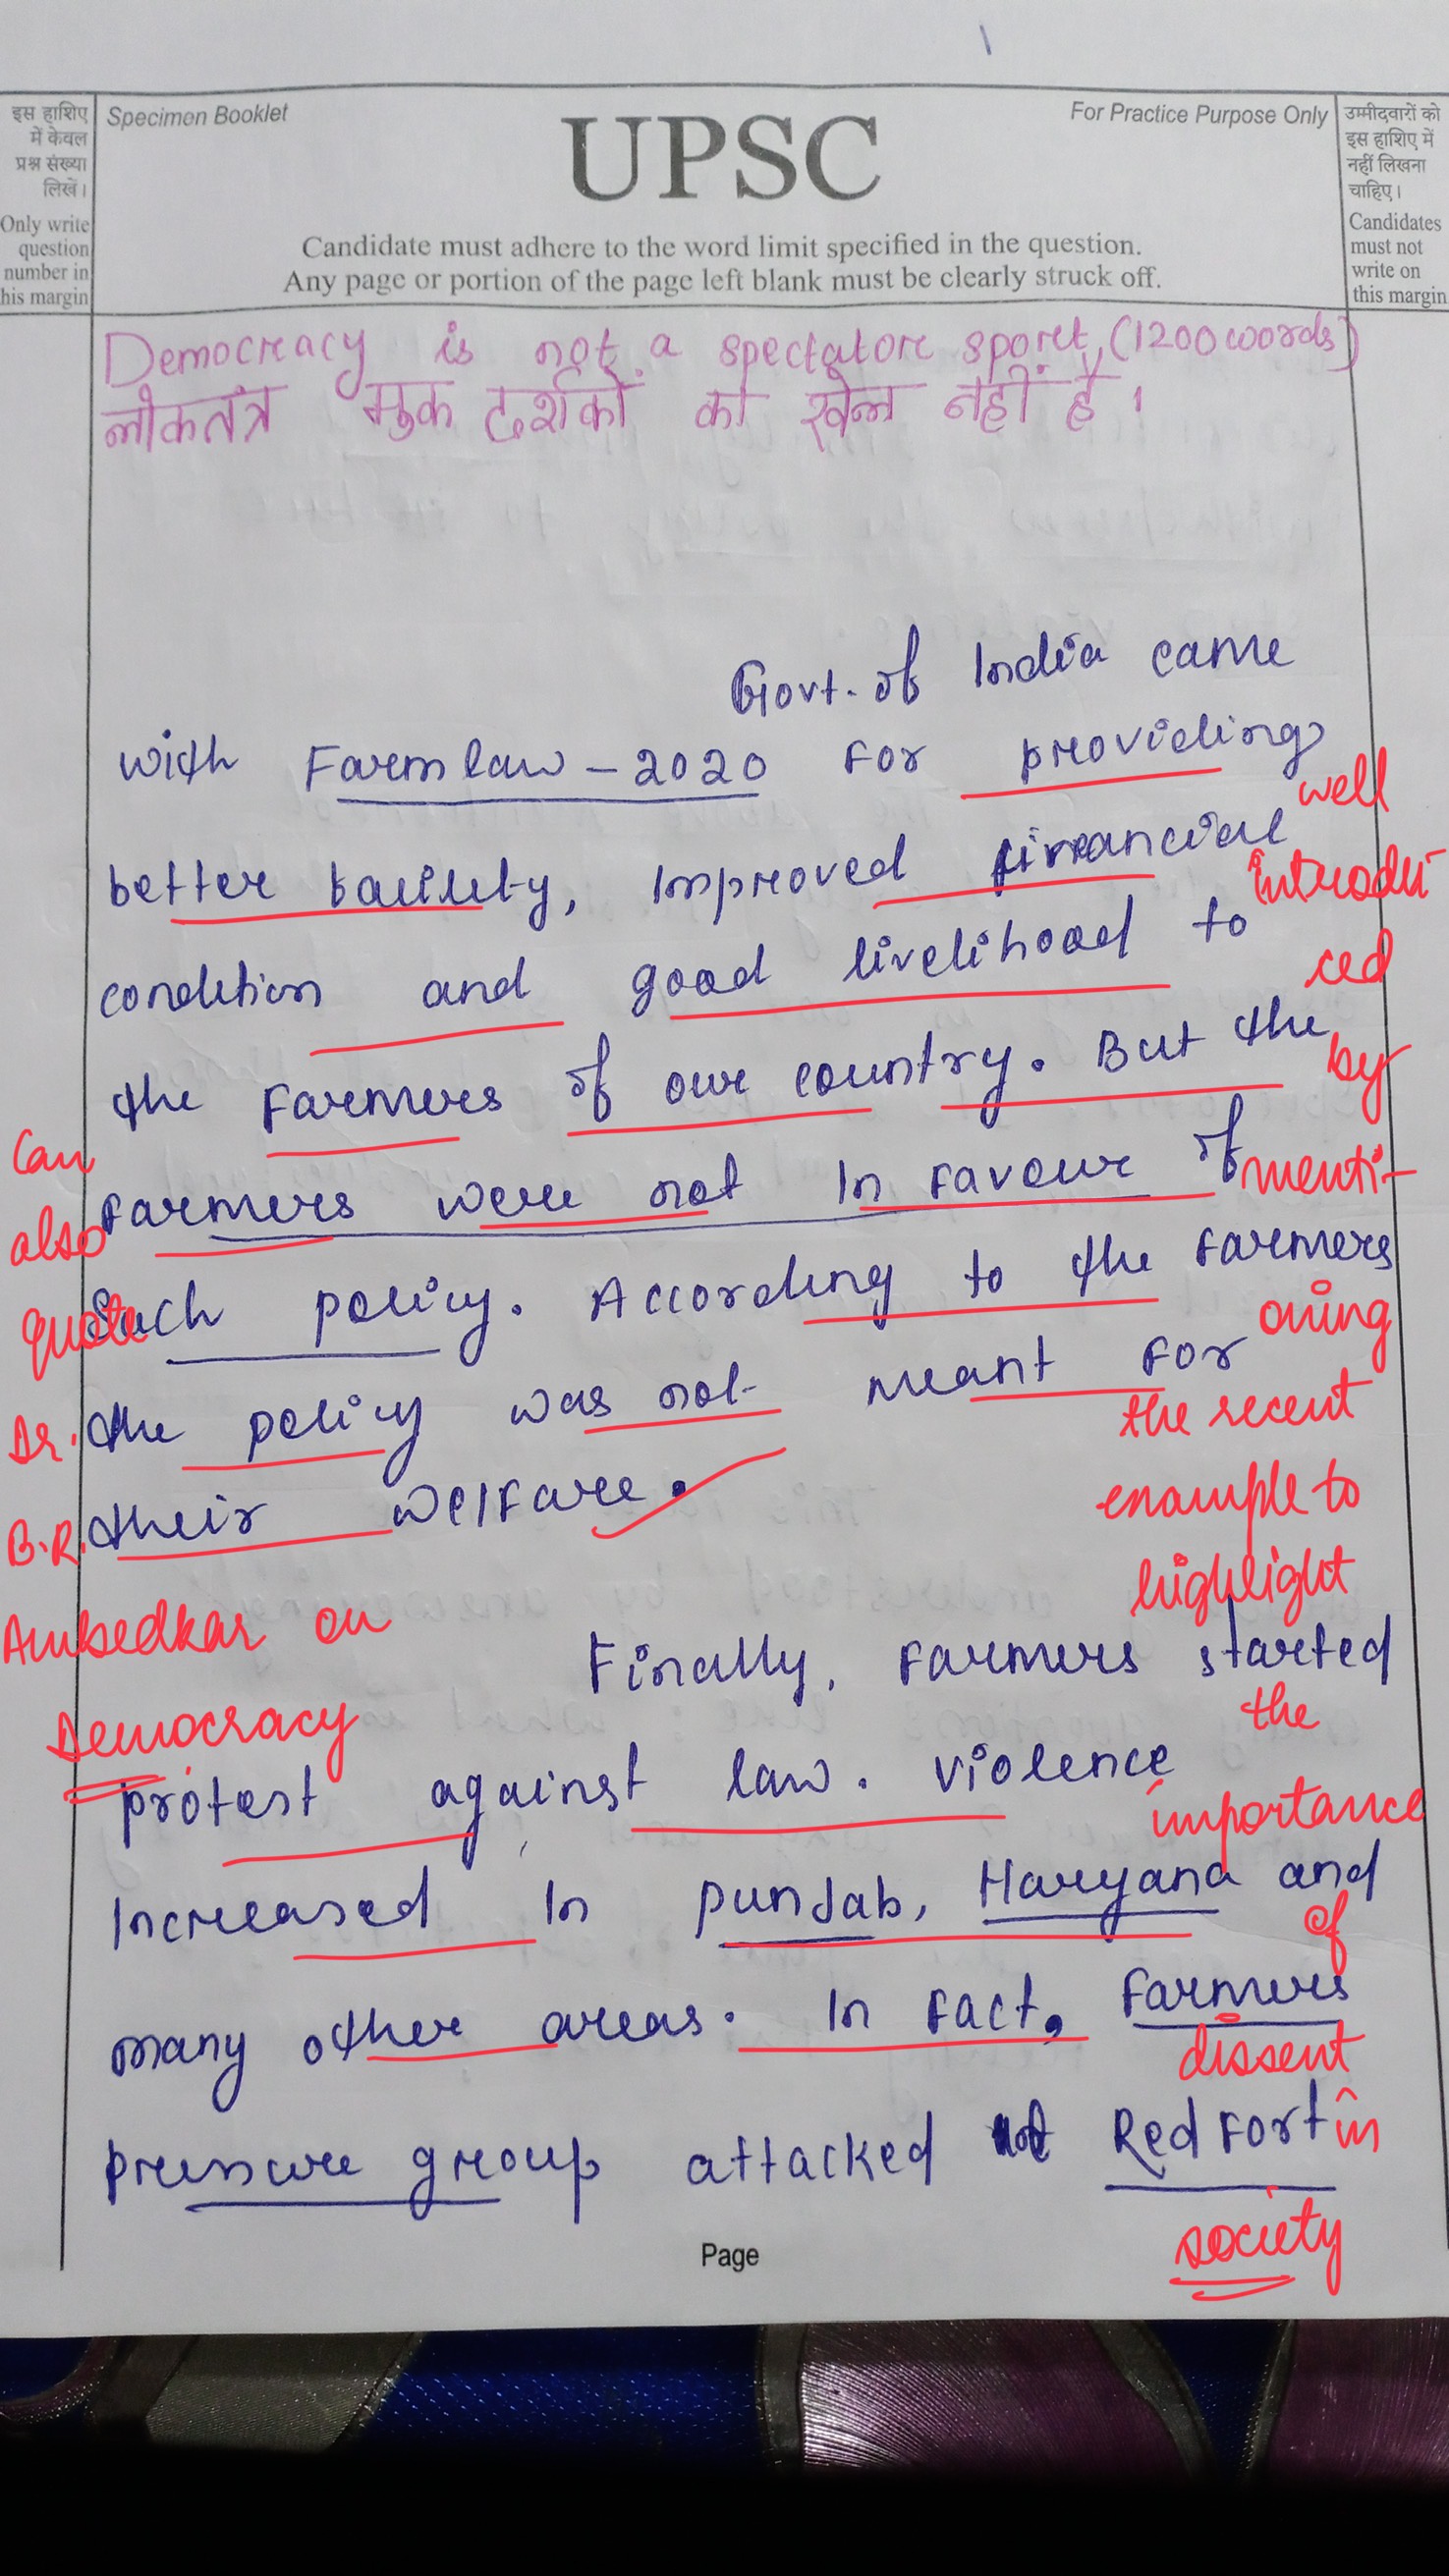 1
इस हाशिए
में केवल
प्रश्न संख्या
लिखें।
Only write
question
number in
his margin
Specimen Booklet
UPSC
For Practice Purpose Only
Candidate must adhere to the word limit specified in the question.
Any page or portion of the page left blank must be clearly struck off.
उम्मीदवारों को
इस हाशिए में
नहीं लिखना
चाहिए।
Candidates
must not
write on
this margin
Democracy is not a spectator sport, (1200 words)
लोकतंत्र मुक दर्शकों का खेल नहीं है।
Govt. of India came
with Farm law - 2020 For providing
better facility, Improved financial
condition and good livelihood to
the Farmers of our country. But the
Farmers were not In favour of
Such policy. According to the Farmers
the policy was not meant For
their welfare.
Finally, Farmers started
protest against law. violence
Increased In punjab, Haryana and
many other areas. In fact, Farmers
pressure group attacked Red Fort
well
introdu-
ced
by
menti-
oning
the recent
example to
highlight
the
importance
of
dissent
in
society
Can
also
quote
Dr.
B.R.
Ambedkar on
Democracy
Page